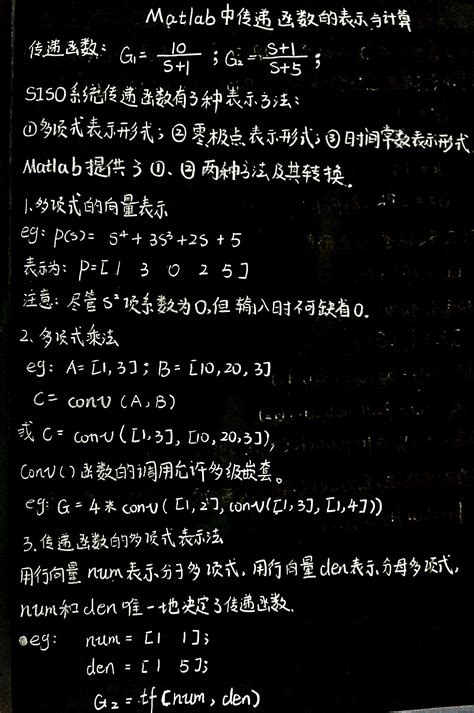 Matlab中传递函数的表示与计算
传递函数: G₁= 10/(S+1) ; G₂= (S+1)/(S+5) ;
SISO系统传递函数有3种表示方法:
①多项式表示形式; ②零极点表示形式; ③时间常数表示形式
Matlab提供了①、②两种方法及其转换。
1.多项式的向量表示
eg: P(S)= S⁴+3S³+2S+5
表示为: P=[1 3 0 2 5]
注意: 尽管S²项系数为0,但输入时不可缺省0。
2.多项式乘法
eg: A=[1,3]; B=[10,20,3]
C= conv (A,B)
或 C= conv([1,3],[10,20,3]),
Conv()函数的调用允许多级嵌套。
eg: G=4*conv([1,2],conv([1,3],[1,4]))
3.传递函数的多项式表示法
用行向量num表示分子多项式,用行向量den表示分母多项式,
num和den唯一地决定了传递函数.
eg: num=[1 1];
den=[1 5];
G₂=tf(num,den)